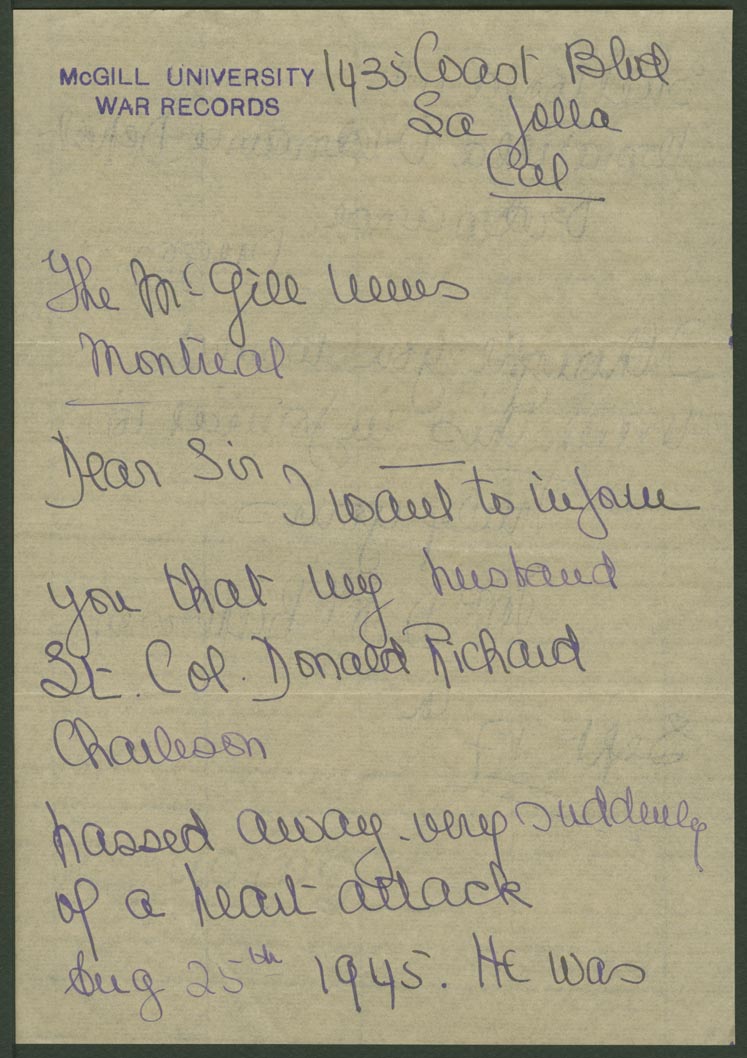 McGILL UNIVERSITY
WAR RECORDS
1435 Coast Blvd
La Jolla
Cal
The McGill News
Montreal
Dear Sir
I want to inform
you that my husband
Lt. Col. Donald Richard
Charleson
passed away very suddenly
of a heart attack
Aug 25th 1945. He was